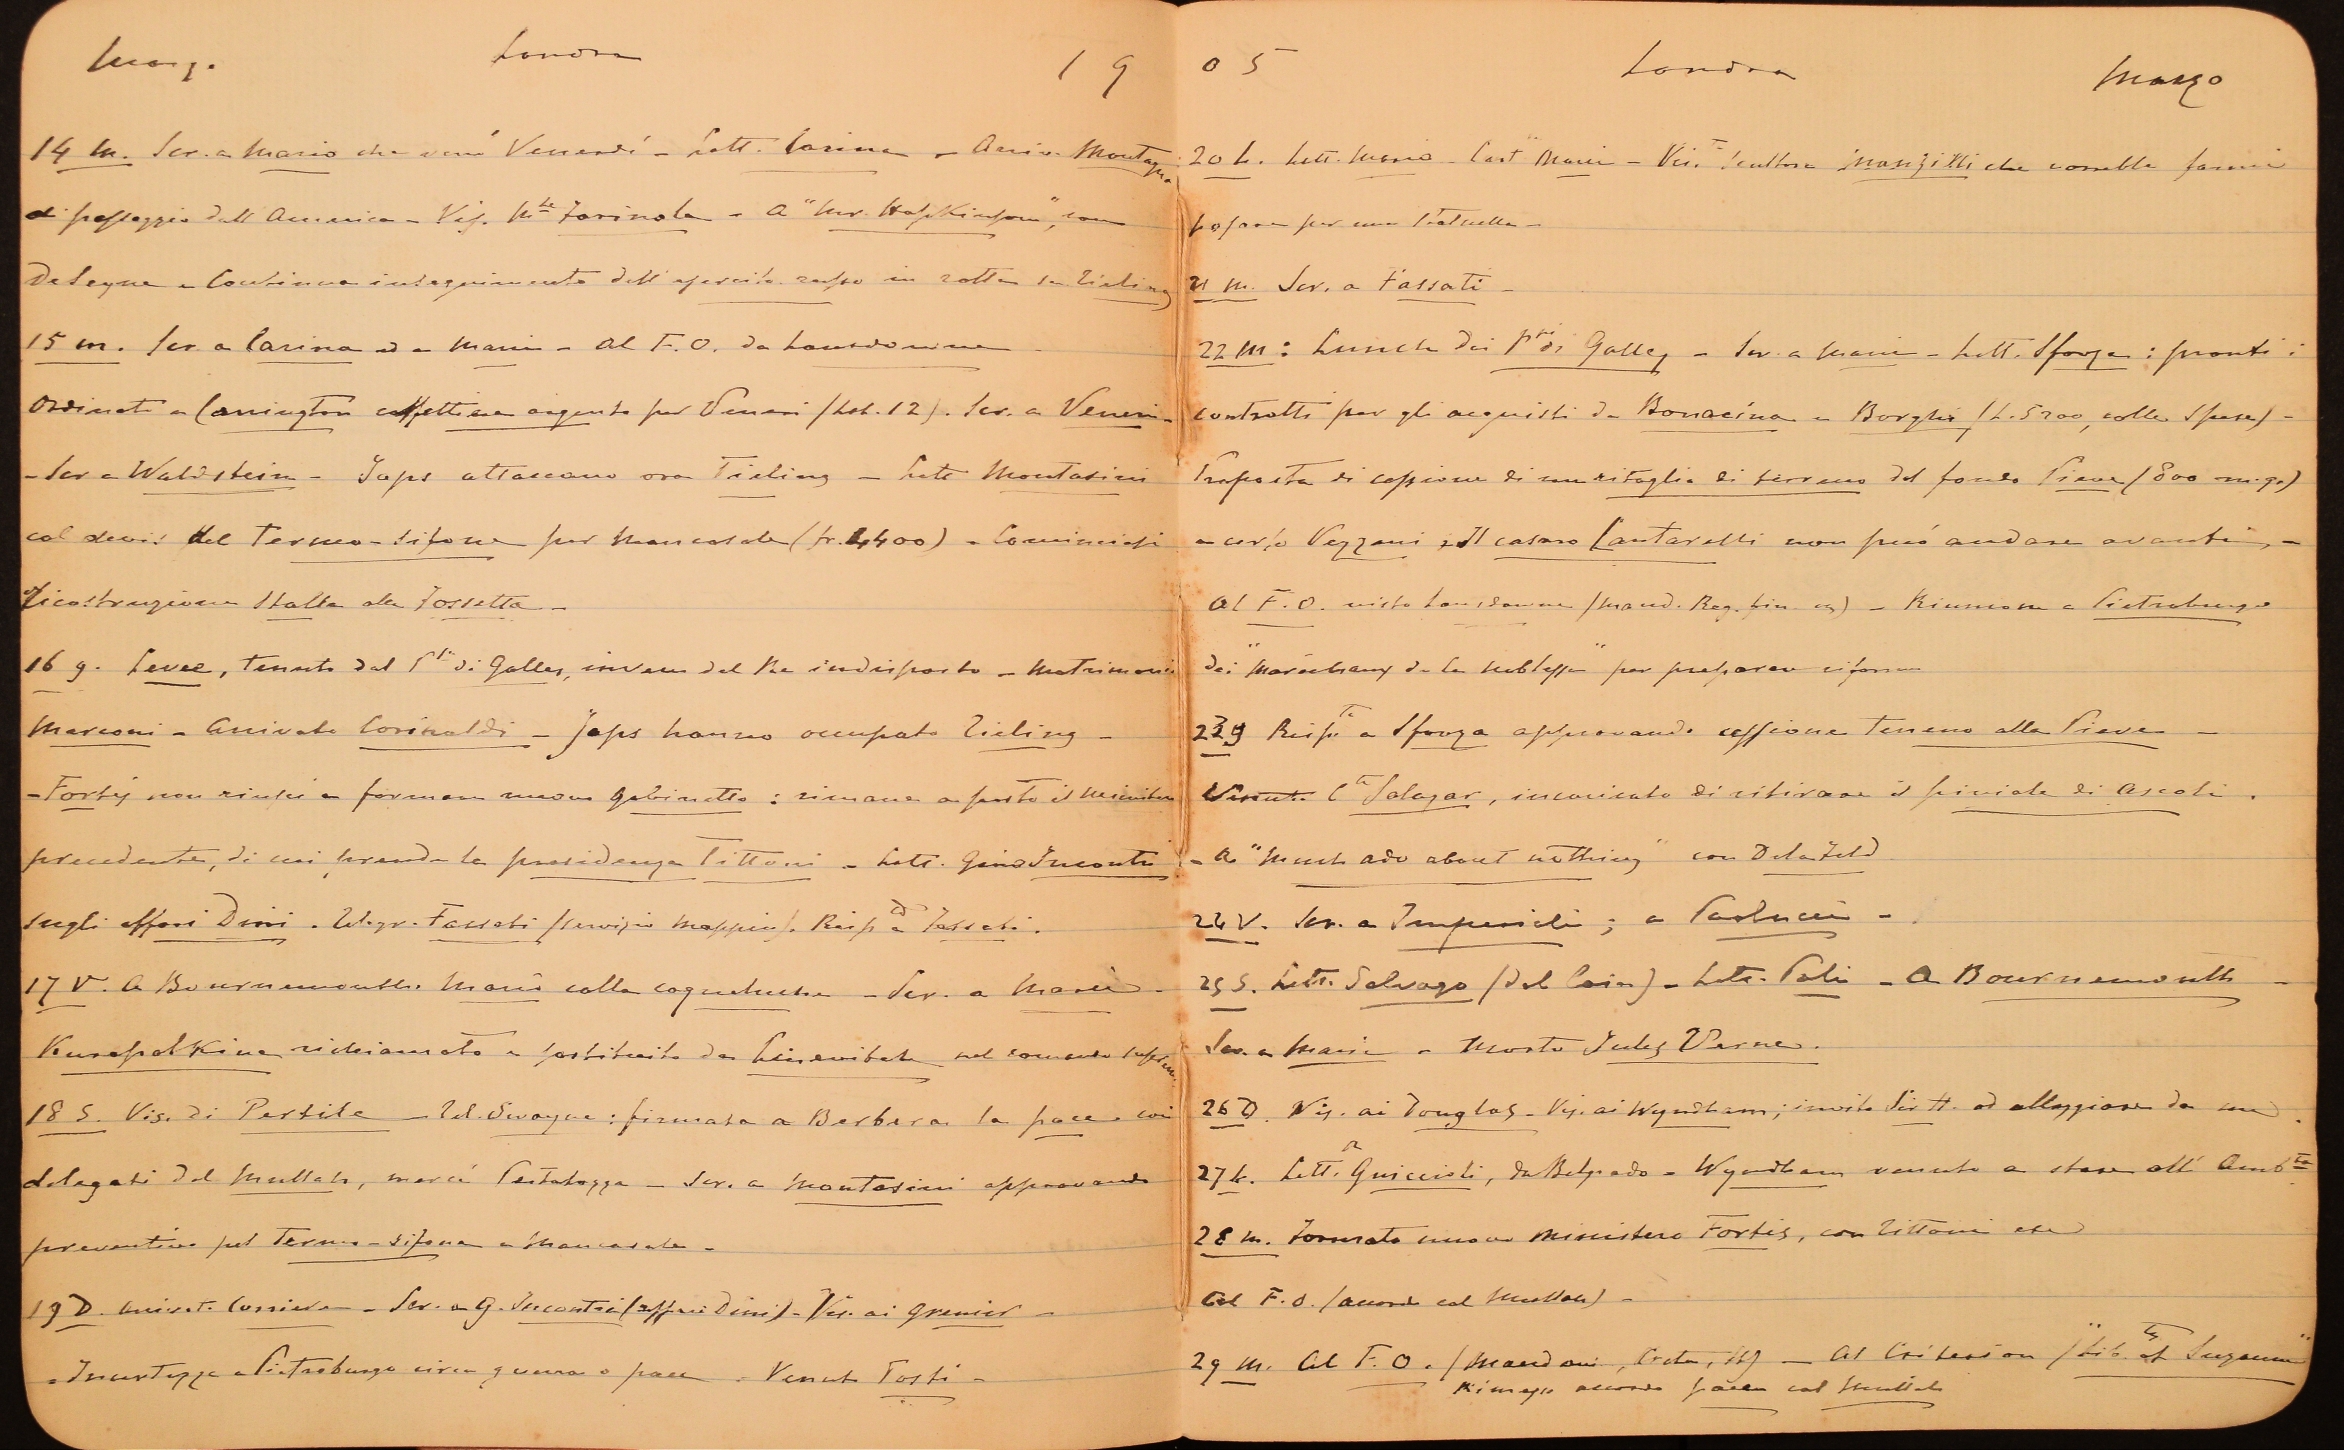 Marzo Londra 19
14 M. Scr. a Mario che verrà Venerdí - Lett. Carina - Arriv. Montagna
di passaggio dall'America - Vis. Farinola - A "Mr. Hopkinson", con
Delegue - Continua inseguimento dell'esercito russo in rotta su Tieling
15 m. Scr. a Carina ed a Marie - Al F.O. da Lansdowne
Ordinati a Carrington argento per Veneri (Lst. 12). Scr. a Veneri -
- Scr a Waldstein - Japs attaccano ora Tieling - Lett Montasini
col devis del Termo-sifone per Mancasale (fr. 4400) - Cominciasi
ricostruzione Stalla alla Fossetta -
16 g. Levee, tenuto dal Pe di Galles, invece del Re indisposto - Matrimonio
Marconi - Arrivato Corinaldi - Japs hanno occupato Tieling -
- Fortis non riuscí a formare nuovo gabinetto : rimane a posto il Ministero
precedente, di cui prende la presidenza Tittoni - Lett. Gino Incontri
sugli affari Dini . Telegr. Fassati (servizio Mappin). Risp a Fassati .
17 V. A Bournemouth. Mario colla coqueluche - Scr. a Marie -
Kuropatkine richiamato e sostituito da Linievitch nel comando suprem.
18 S. Vis. di Pertile - Tel. Swayne : firmata a Berbera la pace coi
delegati del Mullah, mercé Pestalozza - Scr. a Montasini approvando
preventivo pel Termo-sifone a Mancasale -
19 D. Arrivat. Corriere - Scr. a G. Incontri (affari Dini) - Vis. ai Grenier -
- Incertezze a Pietroburgo circa guerra o pace - Venuto Tosti -
05 Londra Marzo
20 L. Lett. Mario - Cart Marie - Vis. Scultore che vorrebbe farmi
posare per una Statuetta -
21 M. Scr. a Fassati -
22 M : Lunch dai Ppi di Galles - Scr. a Marie - Lett. Sforza : pronti i
contratti per gli acquisti da Bonacina e Borghi (L. 5200, colle spese) -
Proposta di cessione di un ritaglio di terreno del fondo Pieve (800 m.q.)
a cer/o Vezzani ; Il casaro Cantarelli non può andare avanti, -
Al F.O. visto Lansdowne - Riunione a Pietroburgo
dei "Maréchaux de la noblesse" per preparare riforme
23 g Rispta a Sforza approvando cessione terreno alla Pieve -
Cte Salazar, incaricato di ritirare il piviale di Ascoli .
- A "Much ado about nothing" con Delafeld
24 V. Scr. a Imperiali ; a Paolucci -
25 S. Lett. Salvago (dal Cairo) - Lett. Poli - A Bournemouth -
Scr. a Marie - Morto Jules Verne .
26 D. Vis. ai Douglas - Vis. ai Wyndham ; invito Sir H. ad alloggiare da me .
27 L. Lett. a Guiccioli, da Belgrado - Wyndham venuto a stare all' Ambta
28 m. Formato nuovo Ministero Fortis, con Tittoni
al F.O. (accordo col Mullah) -
29 M. Al F.O. (Macedoni, Creta, ) - Al Criterion
Rimesso accordo pace col Mullah